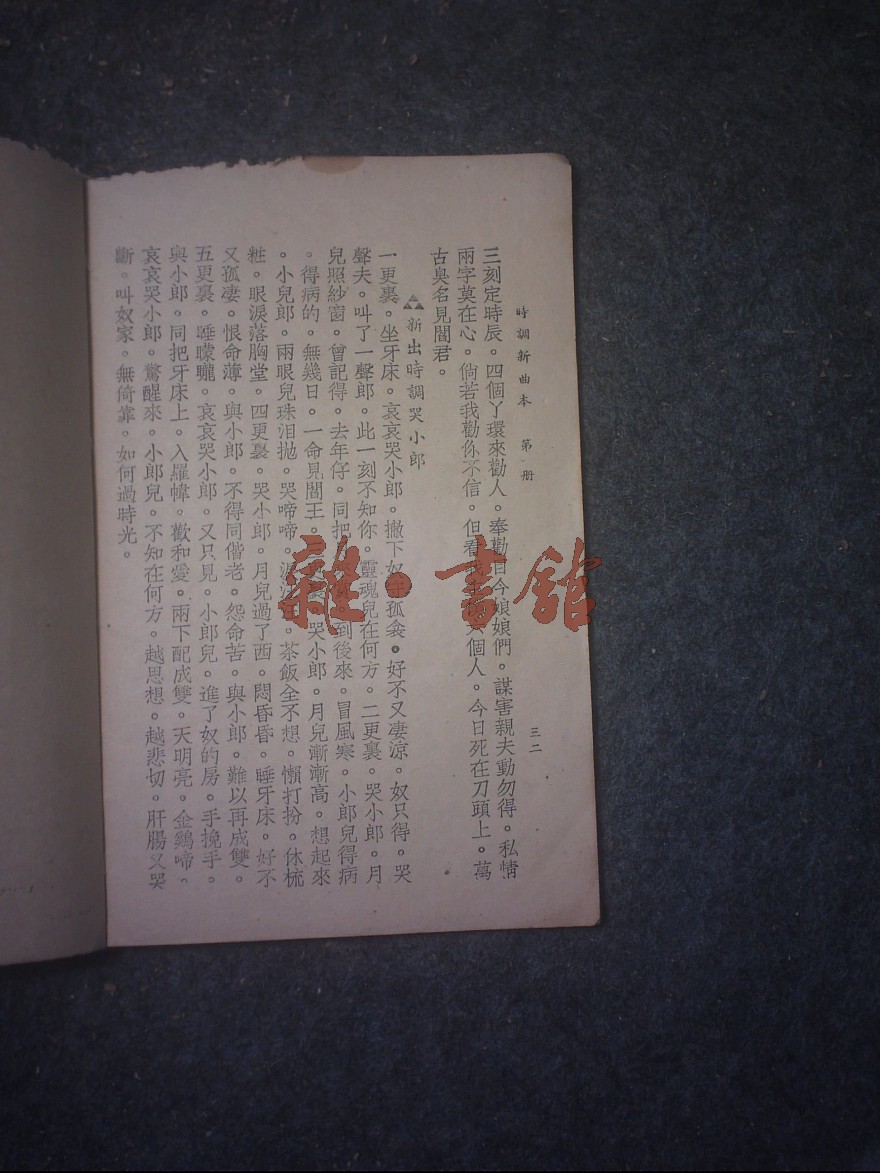 時調新曲本 第一册 三二
三刻定時辰。四個丫環來勸人。奉勸日今娘娘們。謀害親夫動勿得。私情
兩字莫在心。倘若我勸你不信。但看 個人。今日死在刀頭上。萬
古臭名見閻君。
新出時調哭小郎
一更裏。坐牙床。哀哀哭小郎。撇下奴 孤衾。好不又凄涼。奴只得。哭
聲夫。叫了一聲郎。此一刻不知你。靈魂兒在何方。二更裏。哭小郎。月
兒照紗窗。曾記得。去年仔。同把 到後來。冒風寒。小郎兒得病
。得病的。無幾日。一命見閻王。 哭小郎。月兒漸漸高。想起來
。小兒郎。兩眼兒珠泪抛。哭啼啼。淚汪汪。茶飯全不想。懶打扮。休梳
粧。眼淚落胸堂。四更裏。哭小郎。月兒過了西。悶昏昏。睡牙床。好不
又孤凄。恨命薄。與小郎。不得同偕老。怨命苦。與小郎。難以再成雙。
五更裏。睡矇矓。哀哀哭小郎。又只見。小郎兒。進了奴的房。手挽手。
與小郎。同把牙床上。入羅幃。歡和愛。兩下配成雙。天明亮。金鷄啼。
哀哀哭小郎。驚醒來。小郎兒。不知在何方。越思想。越悲切。肝腸又哭
斷。叫奴家。無倚靠。如何過時光。
雜·書館